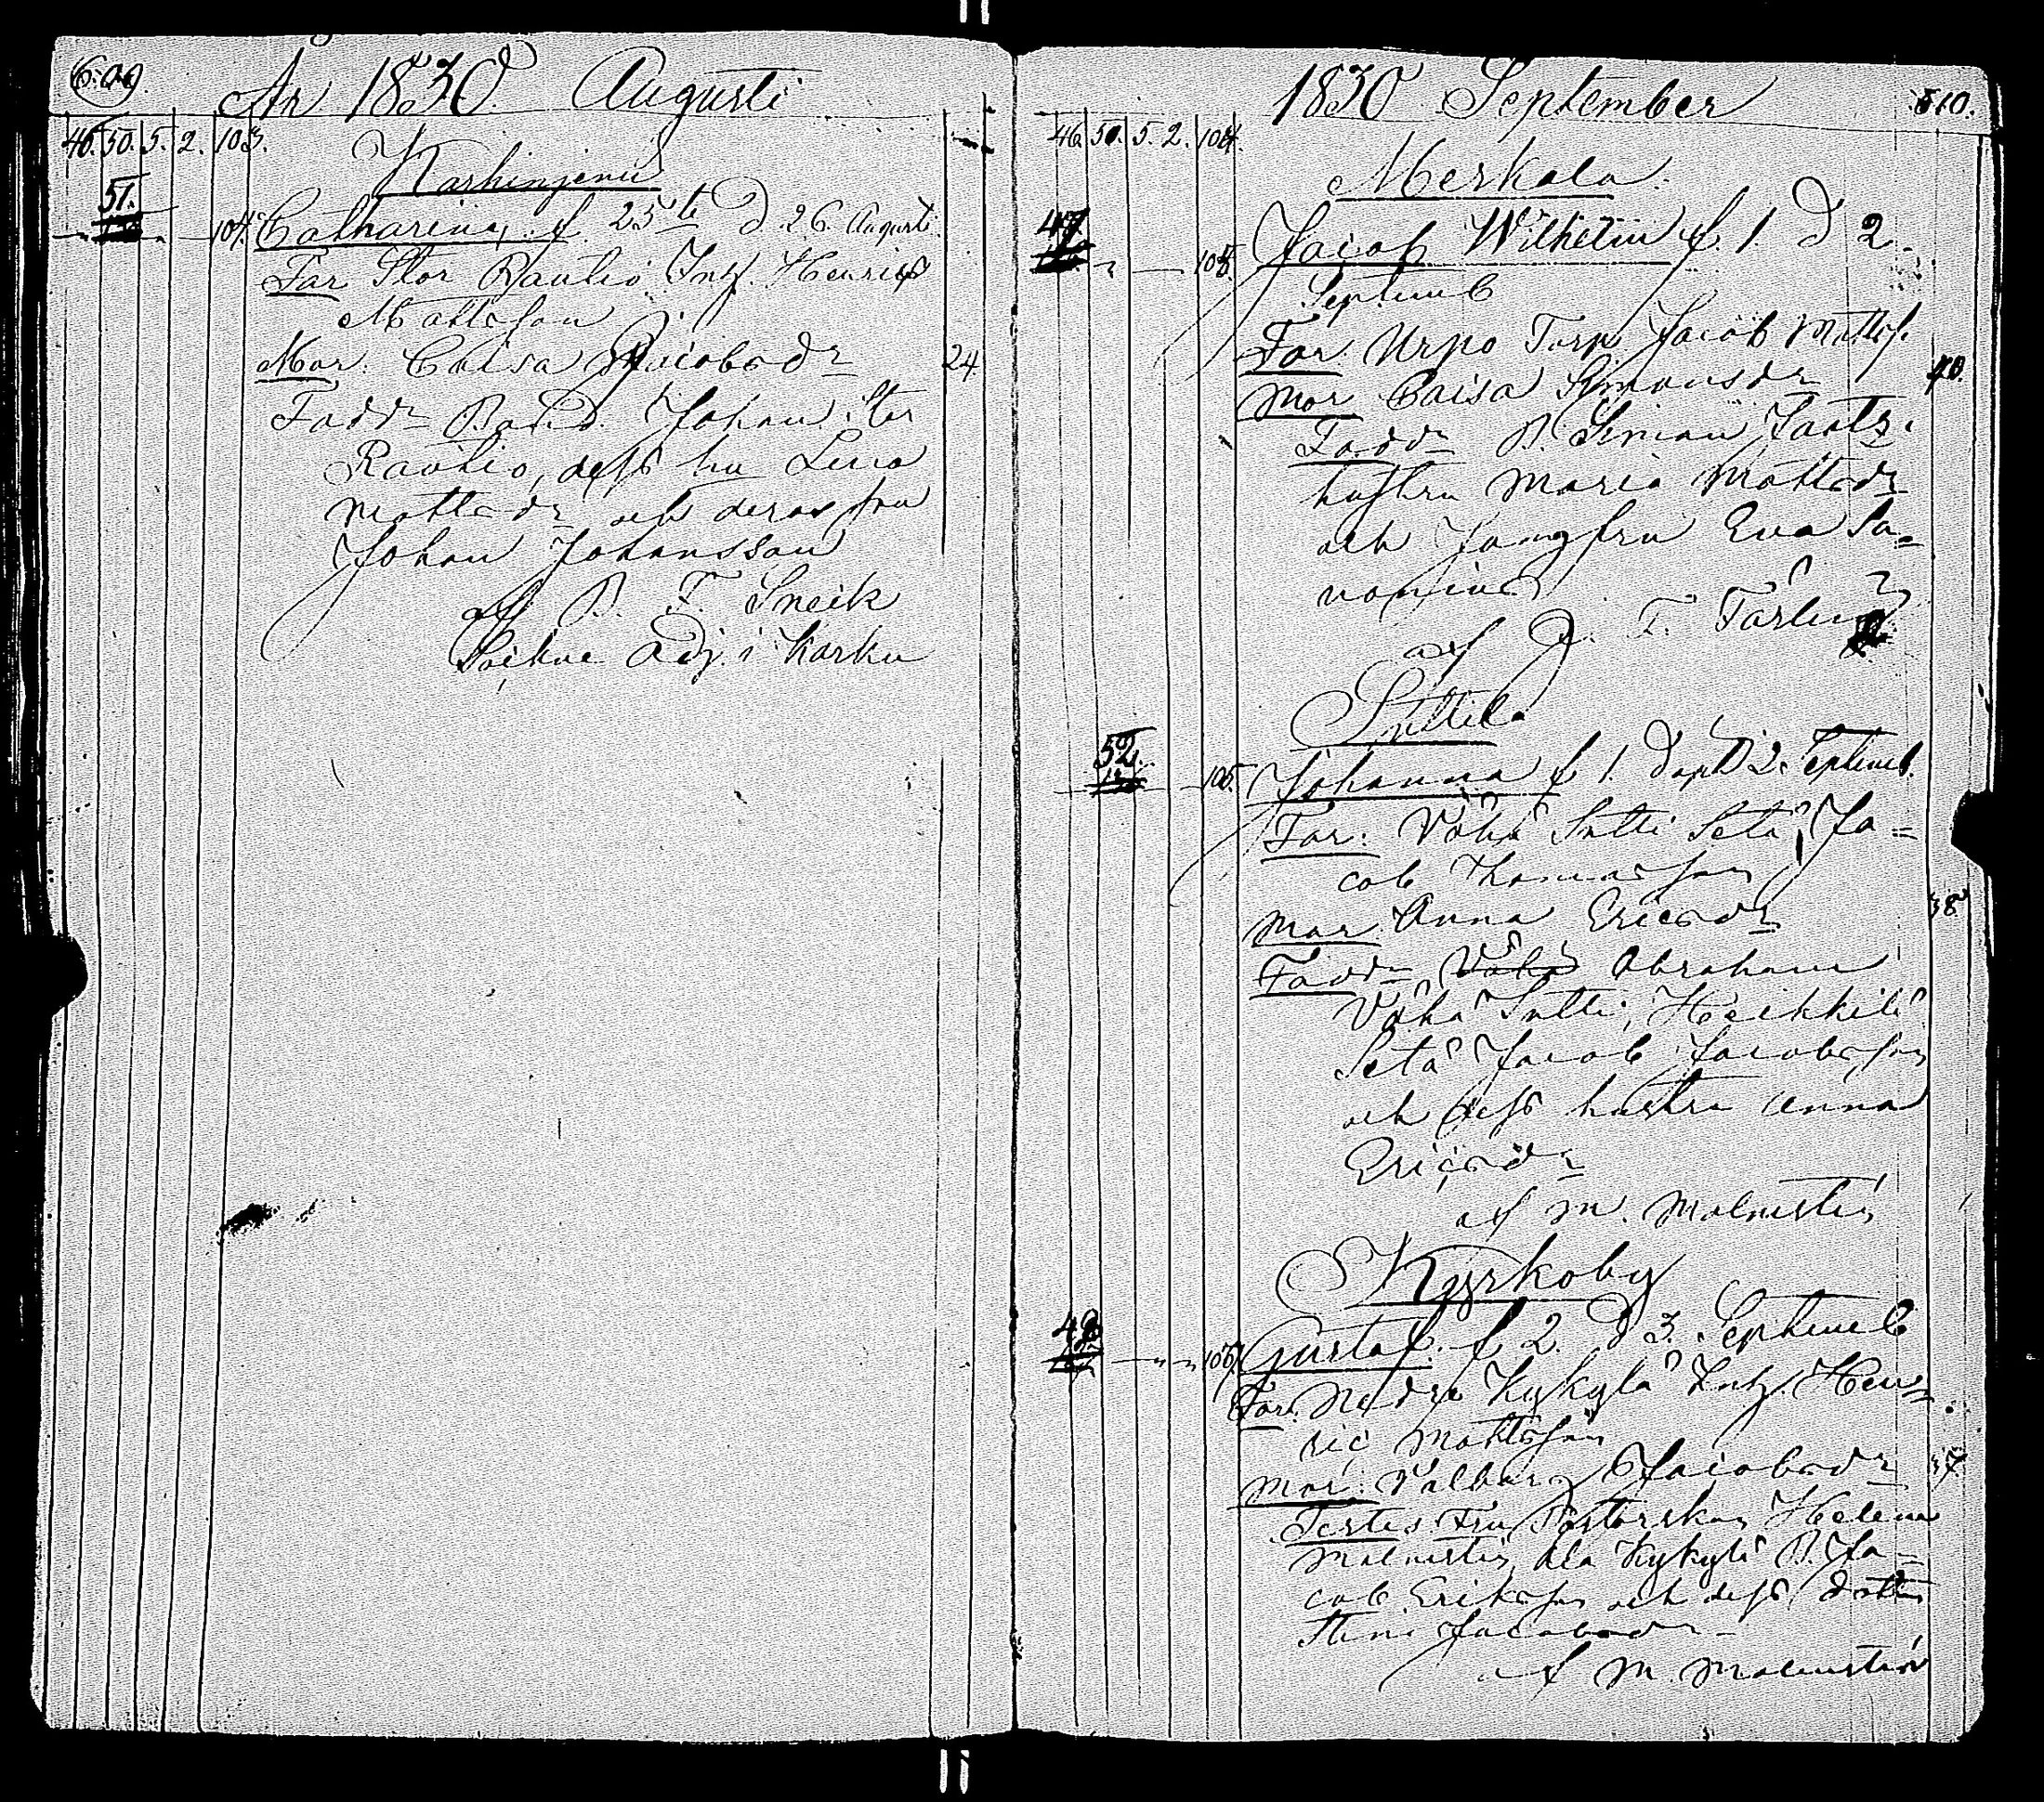 År 1830. Augusti
46. 50. 5. 2. 103.
Karhinjemi
51.
104. Catharina, f. 25te d. 26. Augusti.
Far Stor Rautio Inh. Henric
Mattsson
Mor: Caisa Jacobsdr 24
Faddr Bond. Johan Stor
Rautio, dess hu Lena
Mattsdr och deras son
Johan Johansson
af B. F. Sneik
Sockne Adj. i Karku
1830 September 510.
46. 51. 5. 2. 104.
Merkala.
47.
105. Jacob Wilhelm f. 1. d 2.
Septemb
Far. Urpo Torp. Jacob Mattss.
Mor Caisa Simonsdr 40.
Faddr B. Simon
hustru Maria Mattsdr
och Jungfru Eva Sa=
vonius
af J. F. Tarlin
Suttila
52.
105. Johanna f 1. döpt d 2 Septemb.
Far: Vähä Sutti Setä, Ja=
cob Thomasson
Mor Anna Ericsdr 38
Faddr Vähä Abraham
Vähä Sutti, Heikkilä
Setä Jacob Jacobsson
och dess hustru Anna
Ericsdr
af M. Malmsten
Kyrkoby
48
106. Gustaf. f 2. d 3. Septemb
Far. Nedre Kykylä Inh. Hen=
ric Mattsson
Mor: Valborg Jacobsdr 37
Testes Fru Pastorskan Helena
Malmsten, Ala Kykylä B. Ja=
cob Eriksson och dess dotter
Stina Jacobsdr
af M. Malmsten